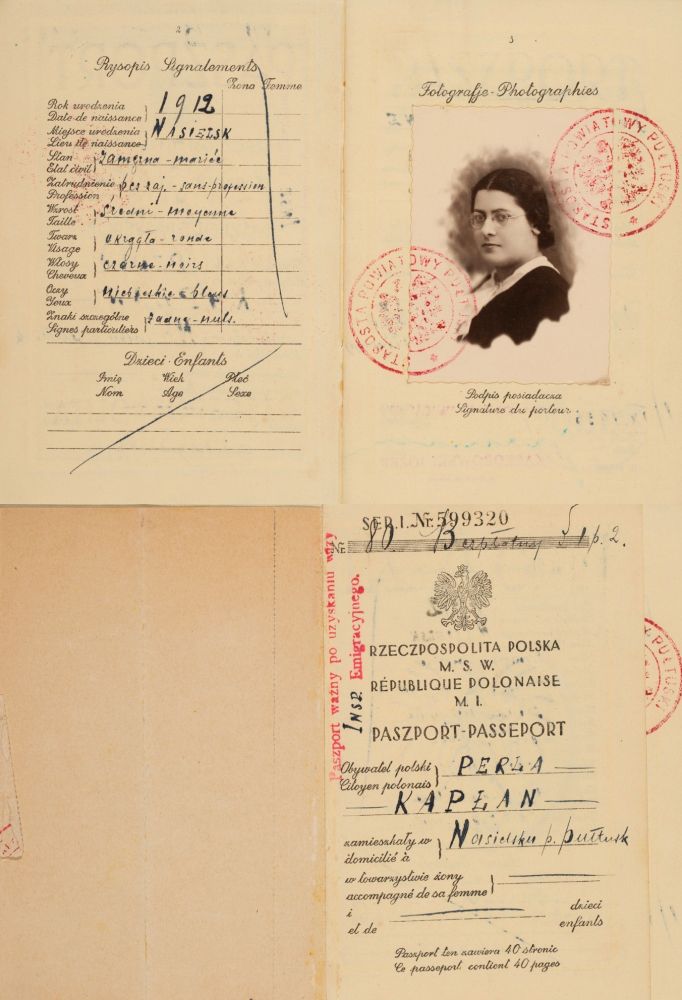 2
Rysopis Signalements
Żona Femme
Rok urodzenia
Date de naissance
1912
Miejsce urodzenia
Lieu de naissance
NASIELSK
Stan
Etat civil
zamężna - mariée
Zatrudnienie
Profession
bez zaj. - sans-profession
Wzrost
Taille
średni - moyenne
Twarz
Visage
okrągła - ronde
Włosy
Cheveux
czarne - noirs
Oczy
Yeux
niebieskie - bleus
Znaki szczególne
Signes particuliers
żadne - nuls.
Dzieci - Enfants
Imię Wiek Płeć
Nom Age Sexe
3
Fotografje - Photographies
STAROSTA POWIATOWY PUŁTUSKI
STAROSTA POWIATOWY PUŁTUSKI
Podpis posiadacza
Signature du porteur
SER. I. Nr. 599320
№ 80 Bezpłatny § 1 p. 2.
Paszport ważny po uzyskaniu wizy
INSP. Emigracyjnego.
RZECZPOSPOLITA POLSKA
M. S. W.
RÉPUBLIQUE POLONAISE
M. I.
PASZPORT - PASSEPORT
Obywatel polski
Citoyen polonais
PERŁA
KAPŁAN
zamieszkały w
domicilié à
Nasielsku p. Pułtusk
w towarzystwie żony
accompagné de sa femme
i
et de
dzieci
enfants
Paszport ten zawiera 40 stronic
Ce passeport contient 40 pages